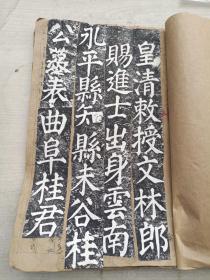 皇清敕授文林郎
賜進士出身雲南
永平縣知縣未谷桂
公墓表曲阜桂君